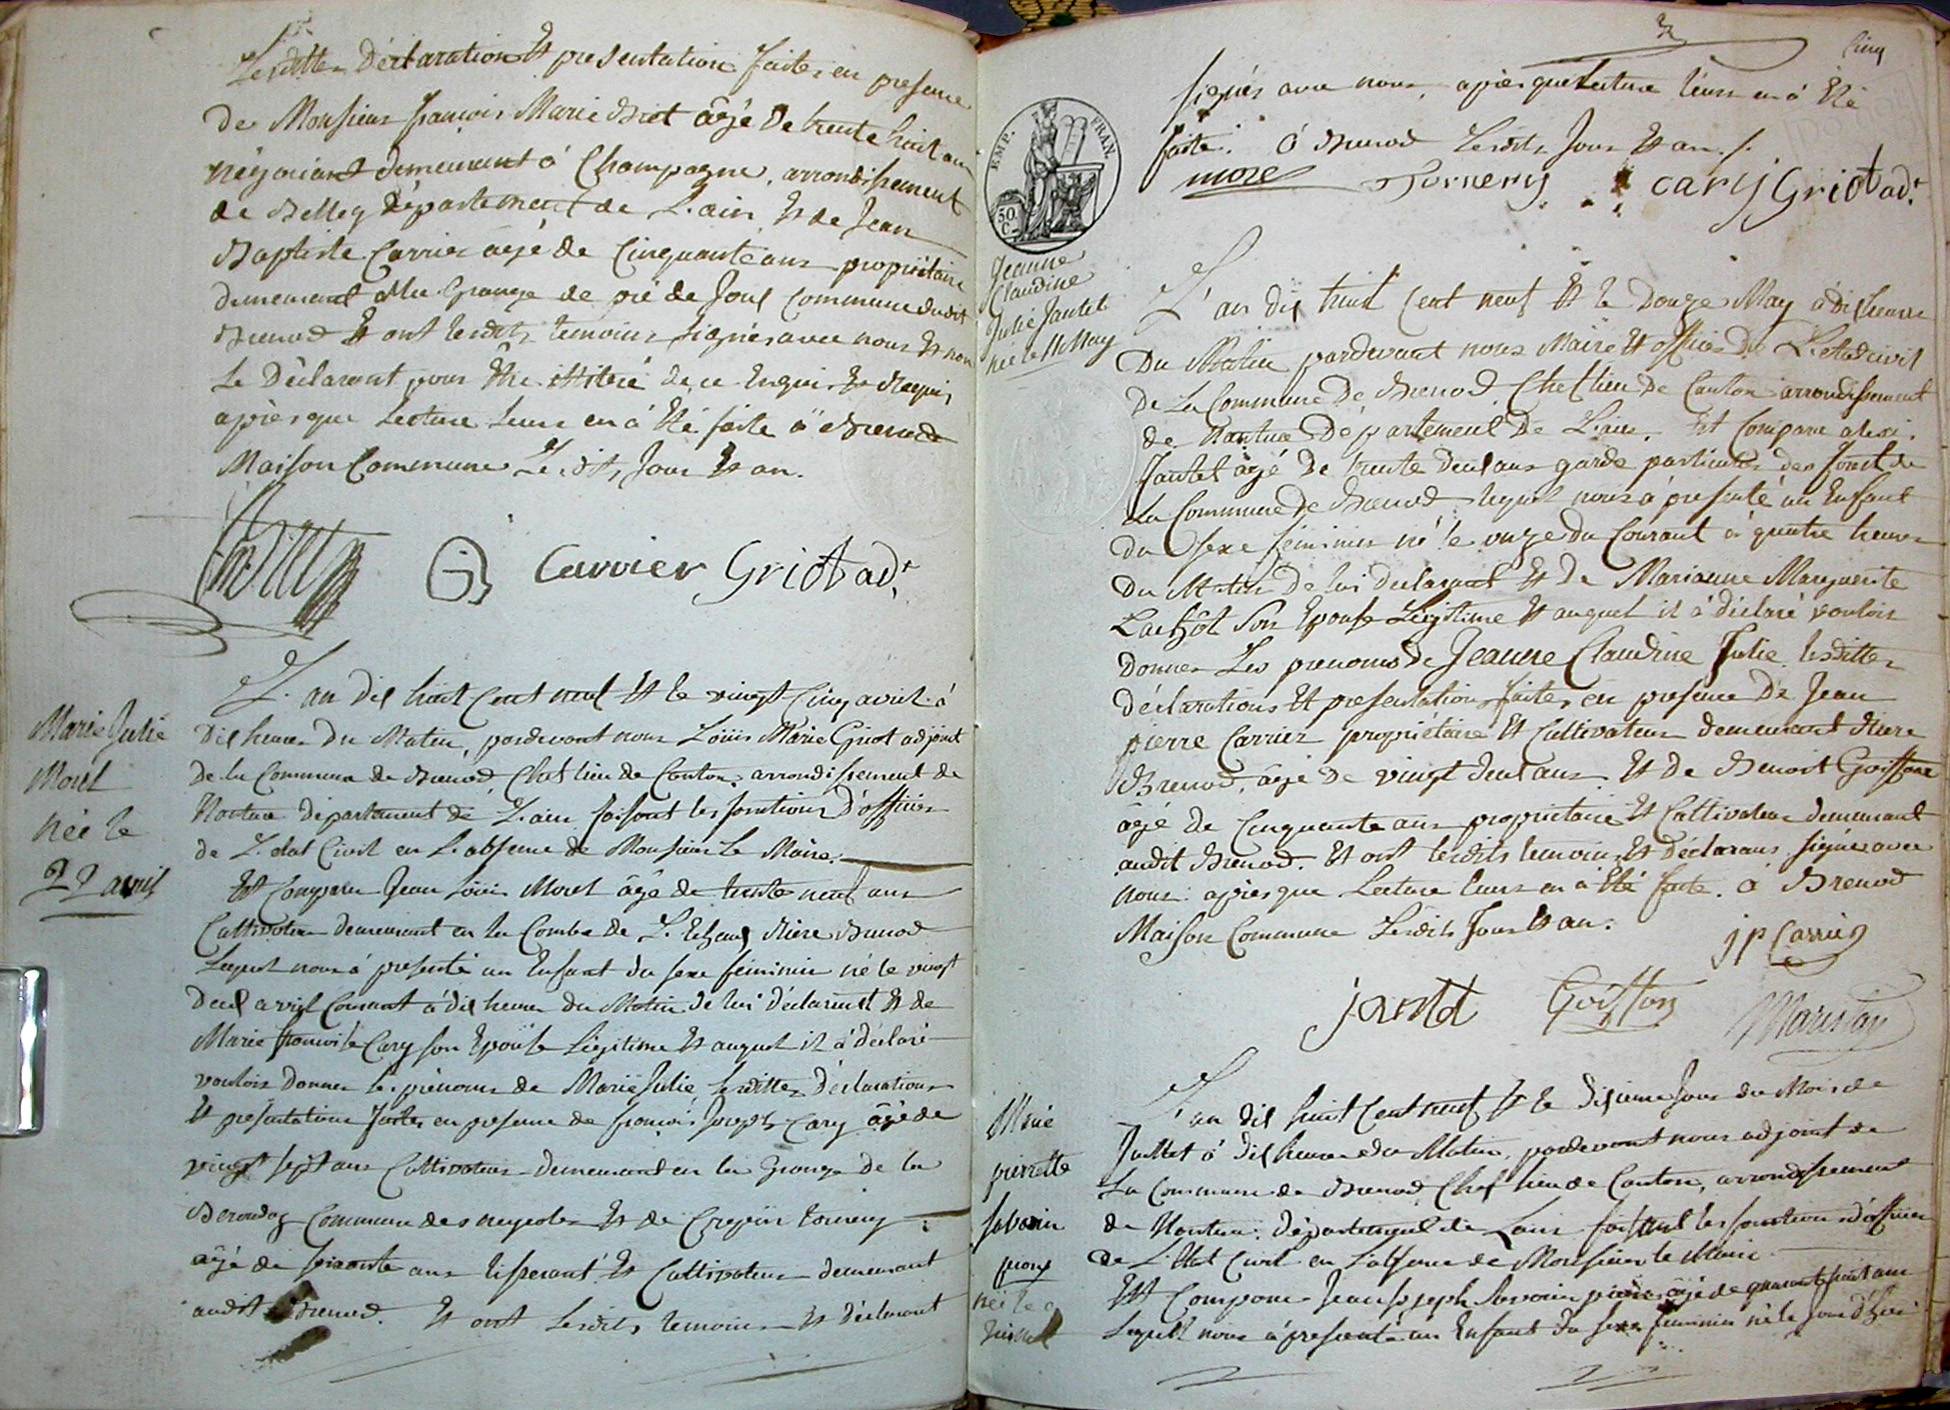 Lesdittes Déclaration Et presentation faites en presence
de Monsieur françois Marie Bret âgé De trente huit ans
négociant demeurant á Champagne, arrondissement
de Belley Département de L'ain, Et de Jean
Baptiste Carrier âgé de Cinquante ans propriétaire
demeurant a la Grange de pié de Joug Commune dudit
Brenod Et ont lesdits temoins signés avec nous Et non
Le Déclarant pour Etre illiteré de ce Enquis Et Requis
après que Lecture Leurs en á Eté faite á Brenod
Maison Commune Lesdits Jour Et an.
Carrier Griot adt
Marie Julie
Morel
née le
22 avril
L'an dix huit Cent neuf Et le vingt Cinq avril á
Dix heures Du Matin, pardevant nous Loüis Marie Griot adjoint
De la Commune de Brenod, Chef lieu de Canton, arrondissement de
Nantua département de L'ain faisant les fonctions D'officier
de L'etat Civil en L'absence de Monsieur Le Maire.
Est Comparu Jean Louis Morel âgé de trente neuf ans
Cultivateur demeurant en la Combe de L' Riere Brenod
Lequel nous á presenté un Enfant du sexe féminin né le vingt
Deux avril Courant á dix heures du Matin de lui déclarant Et de
Marie françoise Cary son Epouse Légitime Et auquel il á déclaré
vouloir Donner les prénoms de Marie Julie lesdittes Déclarations
Et présentations faites en presence de françois Joseph Cary âgé de
vingt sept ans Cultivateur demeurant en la Grange de la
Commune des neyroles Et de tornery
âgé de soixante ans tisserant Et Cultivateur demeurant
audit Brenod. Et ont Lesdits temoins Et déclarant
Cinq
signés avec nous, après que Lecture leurs en á Eté
faite. á Brenod Lesdits Jour Et an./.
morel Tornery cary Griot adt
EMP. FRAN.
50 C.
Jeanne
Claudine
Julie Jantet
née le 11 May
L'an dix huit Cent neuf Et le Douze May á dix heures
Du Matin pardevant nous Maire Et officier De L'etat civil
De La Commune De Brenod, Chef lieu De Canton arrondissement
de Nantua Département De L'ain. Est Comparu alexi
Jantet âgé De trente Deux ans garde particulier des forest de
La Commune de Brenod lequel nous á presenté un Enfant
du Sexe féminin né le onze du Courant á quatre heures
du Matin De lui declarant Et De Marianne Marguerite
Son Epouse Légitime Et auquel il á déclaré vouloir
Donner Les prenoms de Jeanne Claudine Julie. lesdittes
déclarations Et presentation faites en presence De Jean
pierre Carrier propriétaire Et Cultivateur demeurant Riere
Brenod, âgé De vingt deux ans Et de Benoit Goiffon
âgé de Cinquante ans propriétaire Et Cultivateur demeurant
audit Brenod. Et ont lesdits temoins Et Déclarans signés avec
nous après que Lecture leurs en á Eté faite. á Brenod
Maison Commune Lesdits Jour Et an.
j p Carrier
jantet Goiffon
pierrette
savarin
née le 9
Juillet
L'an dix huit Cent neuf Et le Dixieme Jour du Mois de
Juillet á dix heures du Matin, pardevant nous adjoint de
La Commune de Brenod Chef lieu de Canton, arrondissement
de Nantua, département de Lain faisant les fonctions d'officier
de L'Etat Civil en L'absence de Monsieur le Maire
Est Comparu Jean Joseph Savarin âgé de quarante huit ans
Lequel nous á présenté un Enfant du sexe féminin né le jour d'hier